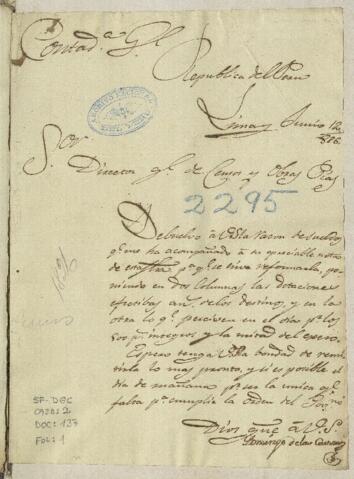 Contad.ª G.l
Republica del Peru
ARCHIVO
Lima y Junio 12
826
S.or
Director g.l de Censos y Obras Pias
2295
Debuelvo á V. la razon de sueldos
q.e me ha acompañado á su apreciable nota
de p.ª q.e se sirva reformarla, po-
niendo en dos columnas las dotaciones
efectibas an. de los destinos, y en la
otra lo q.e perciven en el dia p.r los
500 p.s integros, y la mitad del exceso.
Espero tenga V. la bondad de remi-
tirla lo mas pronto, y si es posible el
dia de mañana por ser la unica q.e
falta p.ª cumplir la orden del Gov.no
Dios gue. á V. S.
Domingo de las Casas
SF-DGC
CAJA: 2
DOC: 137
FOL: 1